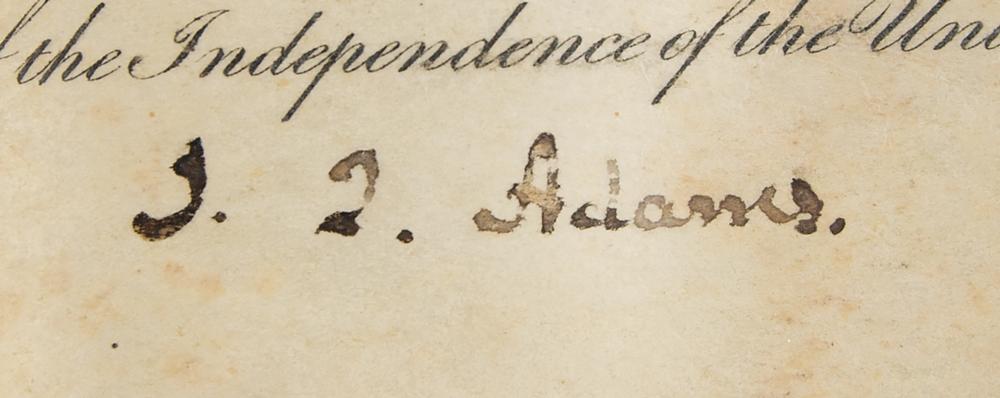 the Independence of the Uni
J. Q. Adams.